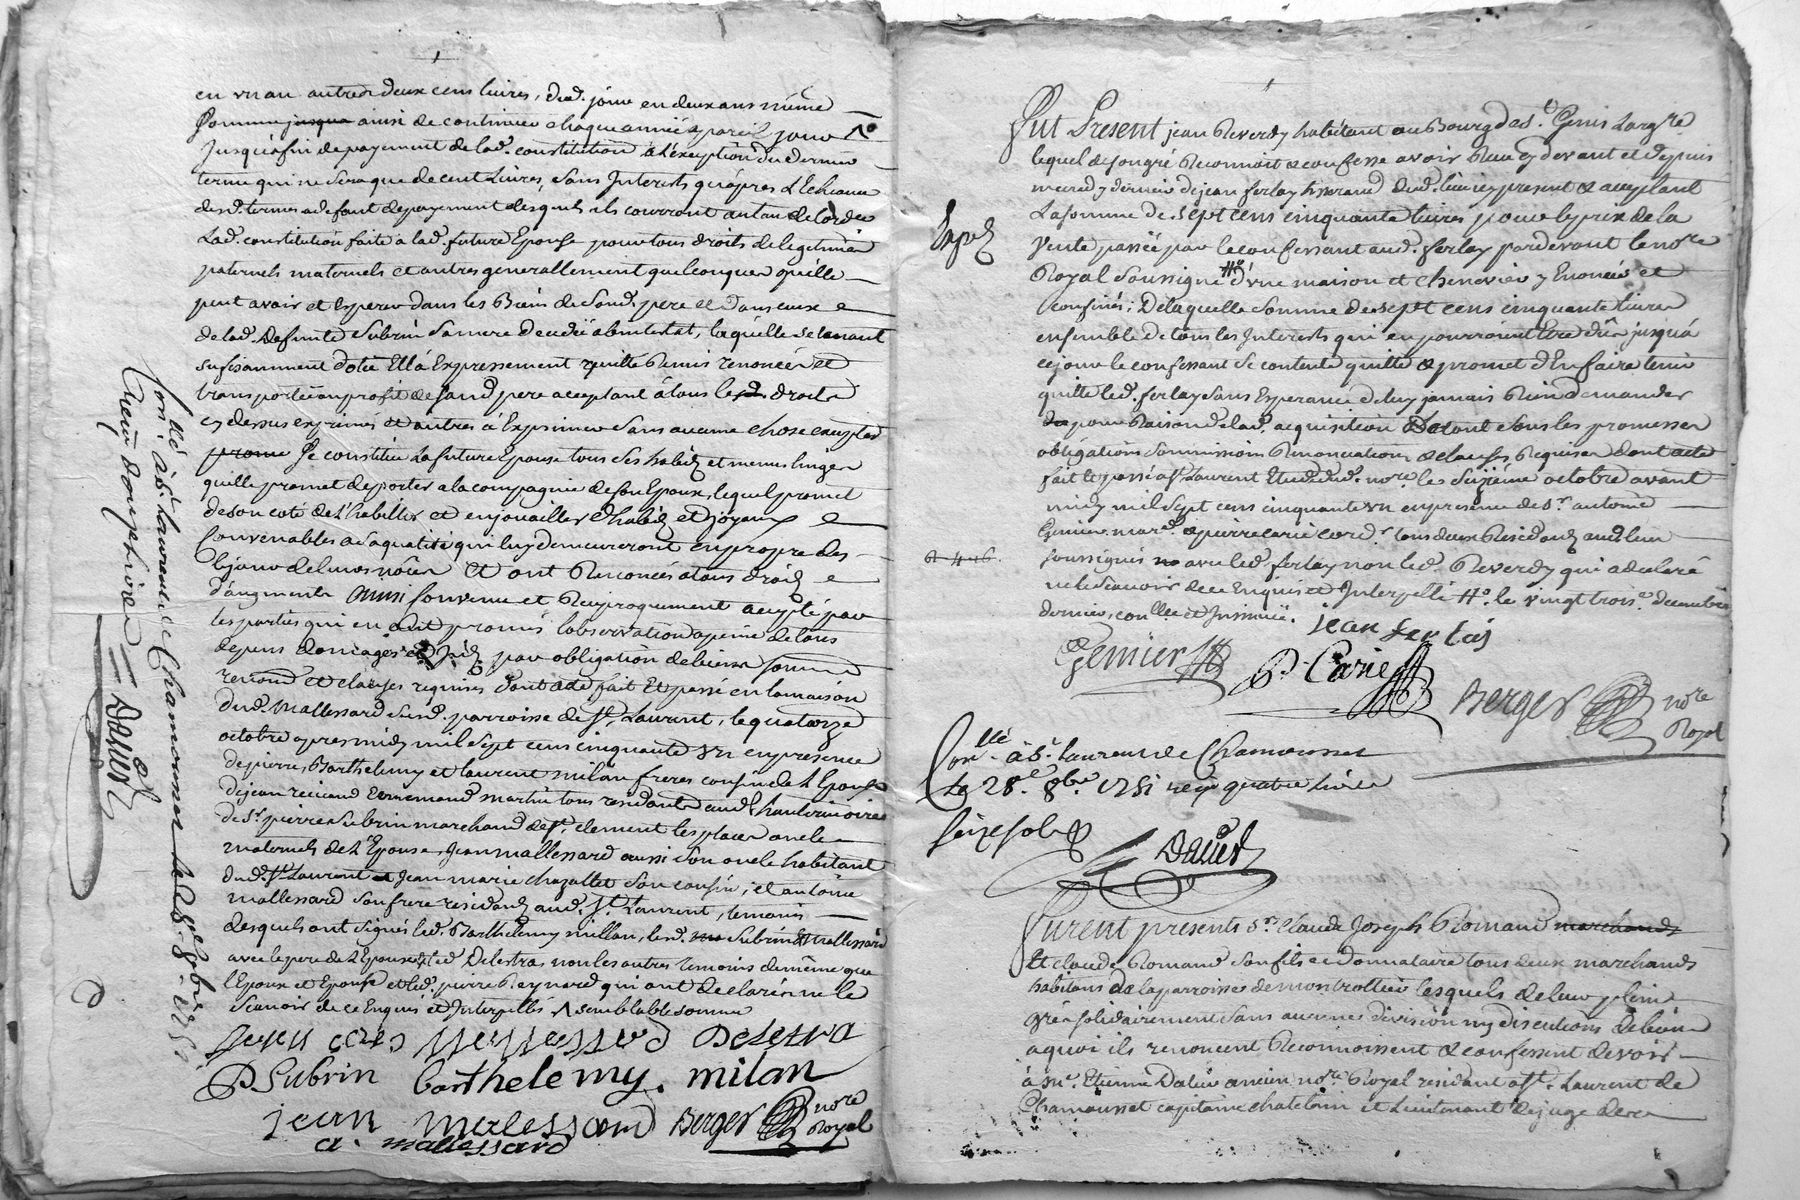 en un an autres deux cens livres, dud. jour en deux ans même
somme jusqua ainsi de continuer chaque année à pareil jour
jusqu'à fin de payement de lad. constitution a l'exeption du dernier
terme qui ne sera que de cent livres, sans Interests qu'apres l'Echeance
desd. termes a defaut de payement desquels ils courront au tau de l'ordce
Lad. constitution faite a lad. future Epouse pour tous droits de legitime
paternels maternels et autres generallement quelconques qu'elle
peut avoir et esperer dans les Biens de sond. pere et dans ceux
de lad. deffunte Subrin sa mere decedée abintestat, laquelle se tenant
sufisamment dotée Ell'à Expressement quitté Remis renoncée et
transporté au profit de sond pere acceptant à tous lesd. droits
cy dessus exprimés et autres à Exprimer sans aucune chose excepter
promet Se constitue la future Epouse tous ses habits et menus linges
quelle promet de porter a la compagnie de son Epoux, lequel promet
de son coté de l'habiller et enjoailler d'habits et joyaux
convenables a sa qualité qui luy demeureront en propre des
le jour de leurs nôces Et ont Renoncés a tous droits
d'augments Ainsi convenu et Reciproquement accepté par
les parties qui en ont promis l'observation a peine de tous
depens domages par obligation de biens soum.
renonc. et clauses requises dont acte fait Et passé en la maison
dud. Mallessard susd. parroisse de St. Laurent, le quatorze
octobre apres midy mil sept cens cinquante un en presence
de pierre, Barthelemy et laurent milan freres cousins de l'Epouse
de jean martin tous residants
de Sr. pierre Subrin marchand de St. clement les places oncle
maternels de l'Epouse, Jean mallessard aussi son oncle habitant
dud. St. Laurent et Jean marie chazallet son cousin, et antoine
mallessard son frere residants aud. St. Laurent, temoins
desquels ont signés led. Barthelemy millan, lesd. Subrin & mallessard
avec le pere de l'Epouse & led Delestra non les autres temoins de même que
l'Epoux et Epouse et led. pierre Reynard qui ont declarés ne le
scavoir de ce Enquis et Interpellés semblable somme
Delestra
P Subrin barthelemy. milan
jean malessard Berger nore Royal
a. mallessard
Conllé à St. Laurent de Chamousset le 28 8bre 1751
Dalier
Fut Present jean Reverdy habitant au Bourg de St. Genis Largre
lequel de son gré Reconnoit & confesse avoir Reçu cy devant et depuis
mercredy dernier de jean ferlay tisserand dud. lieu cy present & acceptant
La somme de sept cens cinquante livres pour le prix de la
vente passée par le confessant aud. ferlay pardevant le nore
Royal soussigné d'une maison et chenevier y Enoncés et
confinés; De laquelle somme de sept cens cinquante livres
ensemble de tous les Interests qui en pourroient Etre dûs jusqu'à
ce jour le confessant se contente quitte & promet d'En faire tenir
quitte led. ferlay sans Esperance de luy jamais Rien demander
pour Raison de lad. acquisition Dont sous les promesses
obligations soumissions Renonciations & clauses Requises dont acte
fait et passé a St. Laurent Etude dud. nore le Sixiéme octobre avant
midy mil sept cens cinquante un en presence de Sr. antoine
Genier mard. & pierre carie cord. tous deux Residants aud. lieu
soussignés avec led. ferlay non led. Reverdy qui a declaré
ne le scavoir de ce Enquis et Interpellé le vingt trois decembre
dernier, conllé et Insinué. jean ferlay
Genier P. Carie
Berger nore Royal
Conllé à St. laurent de Chamousset
Le 28e. 8bre. 1751 reçu quatre livres
seize sols
Dalier
Furent presents Sr. Claude Joseph Romand marchands
Et claude Romand son fils et donnataire tous deux marchands
habitans de la parroisse de montrottier lesquels de leur plein
gré & solidairement sans aucune division ny discutions de biens
aquoi ils renoncent Reconnoissent & confessent devoir
à me. Etienne Dalier ancien nore Royal residant a St. Laurent de
Chamousset capitaine chatelain et Lieutenant de juge dece